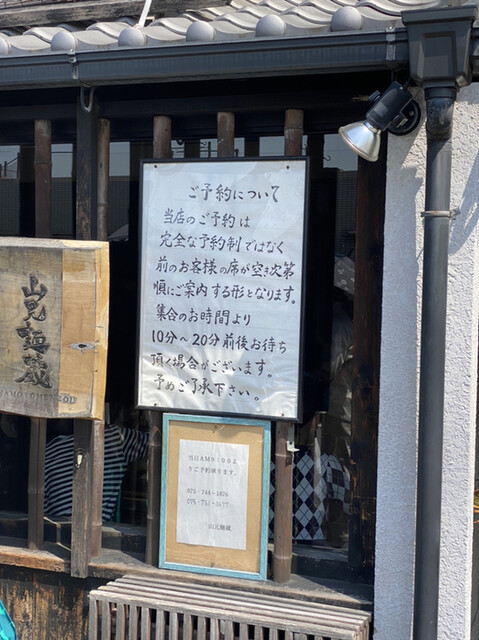 ご予約について
当店のご予約は
完全な予約制ではなく
前のお客様の席が空き次第
順にご案内する形となります。
集合のお時間より
10分〜20分前後お待ち
頂く場合がございます。
予めご了承下さい。
山元麺蔵
当日AM9:00よ
りご予約承ります。
山元麺蔵